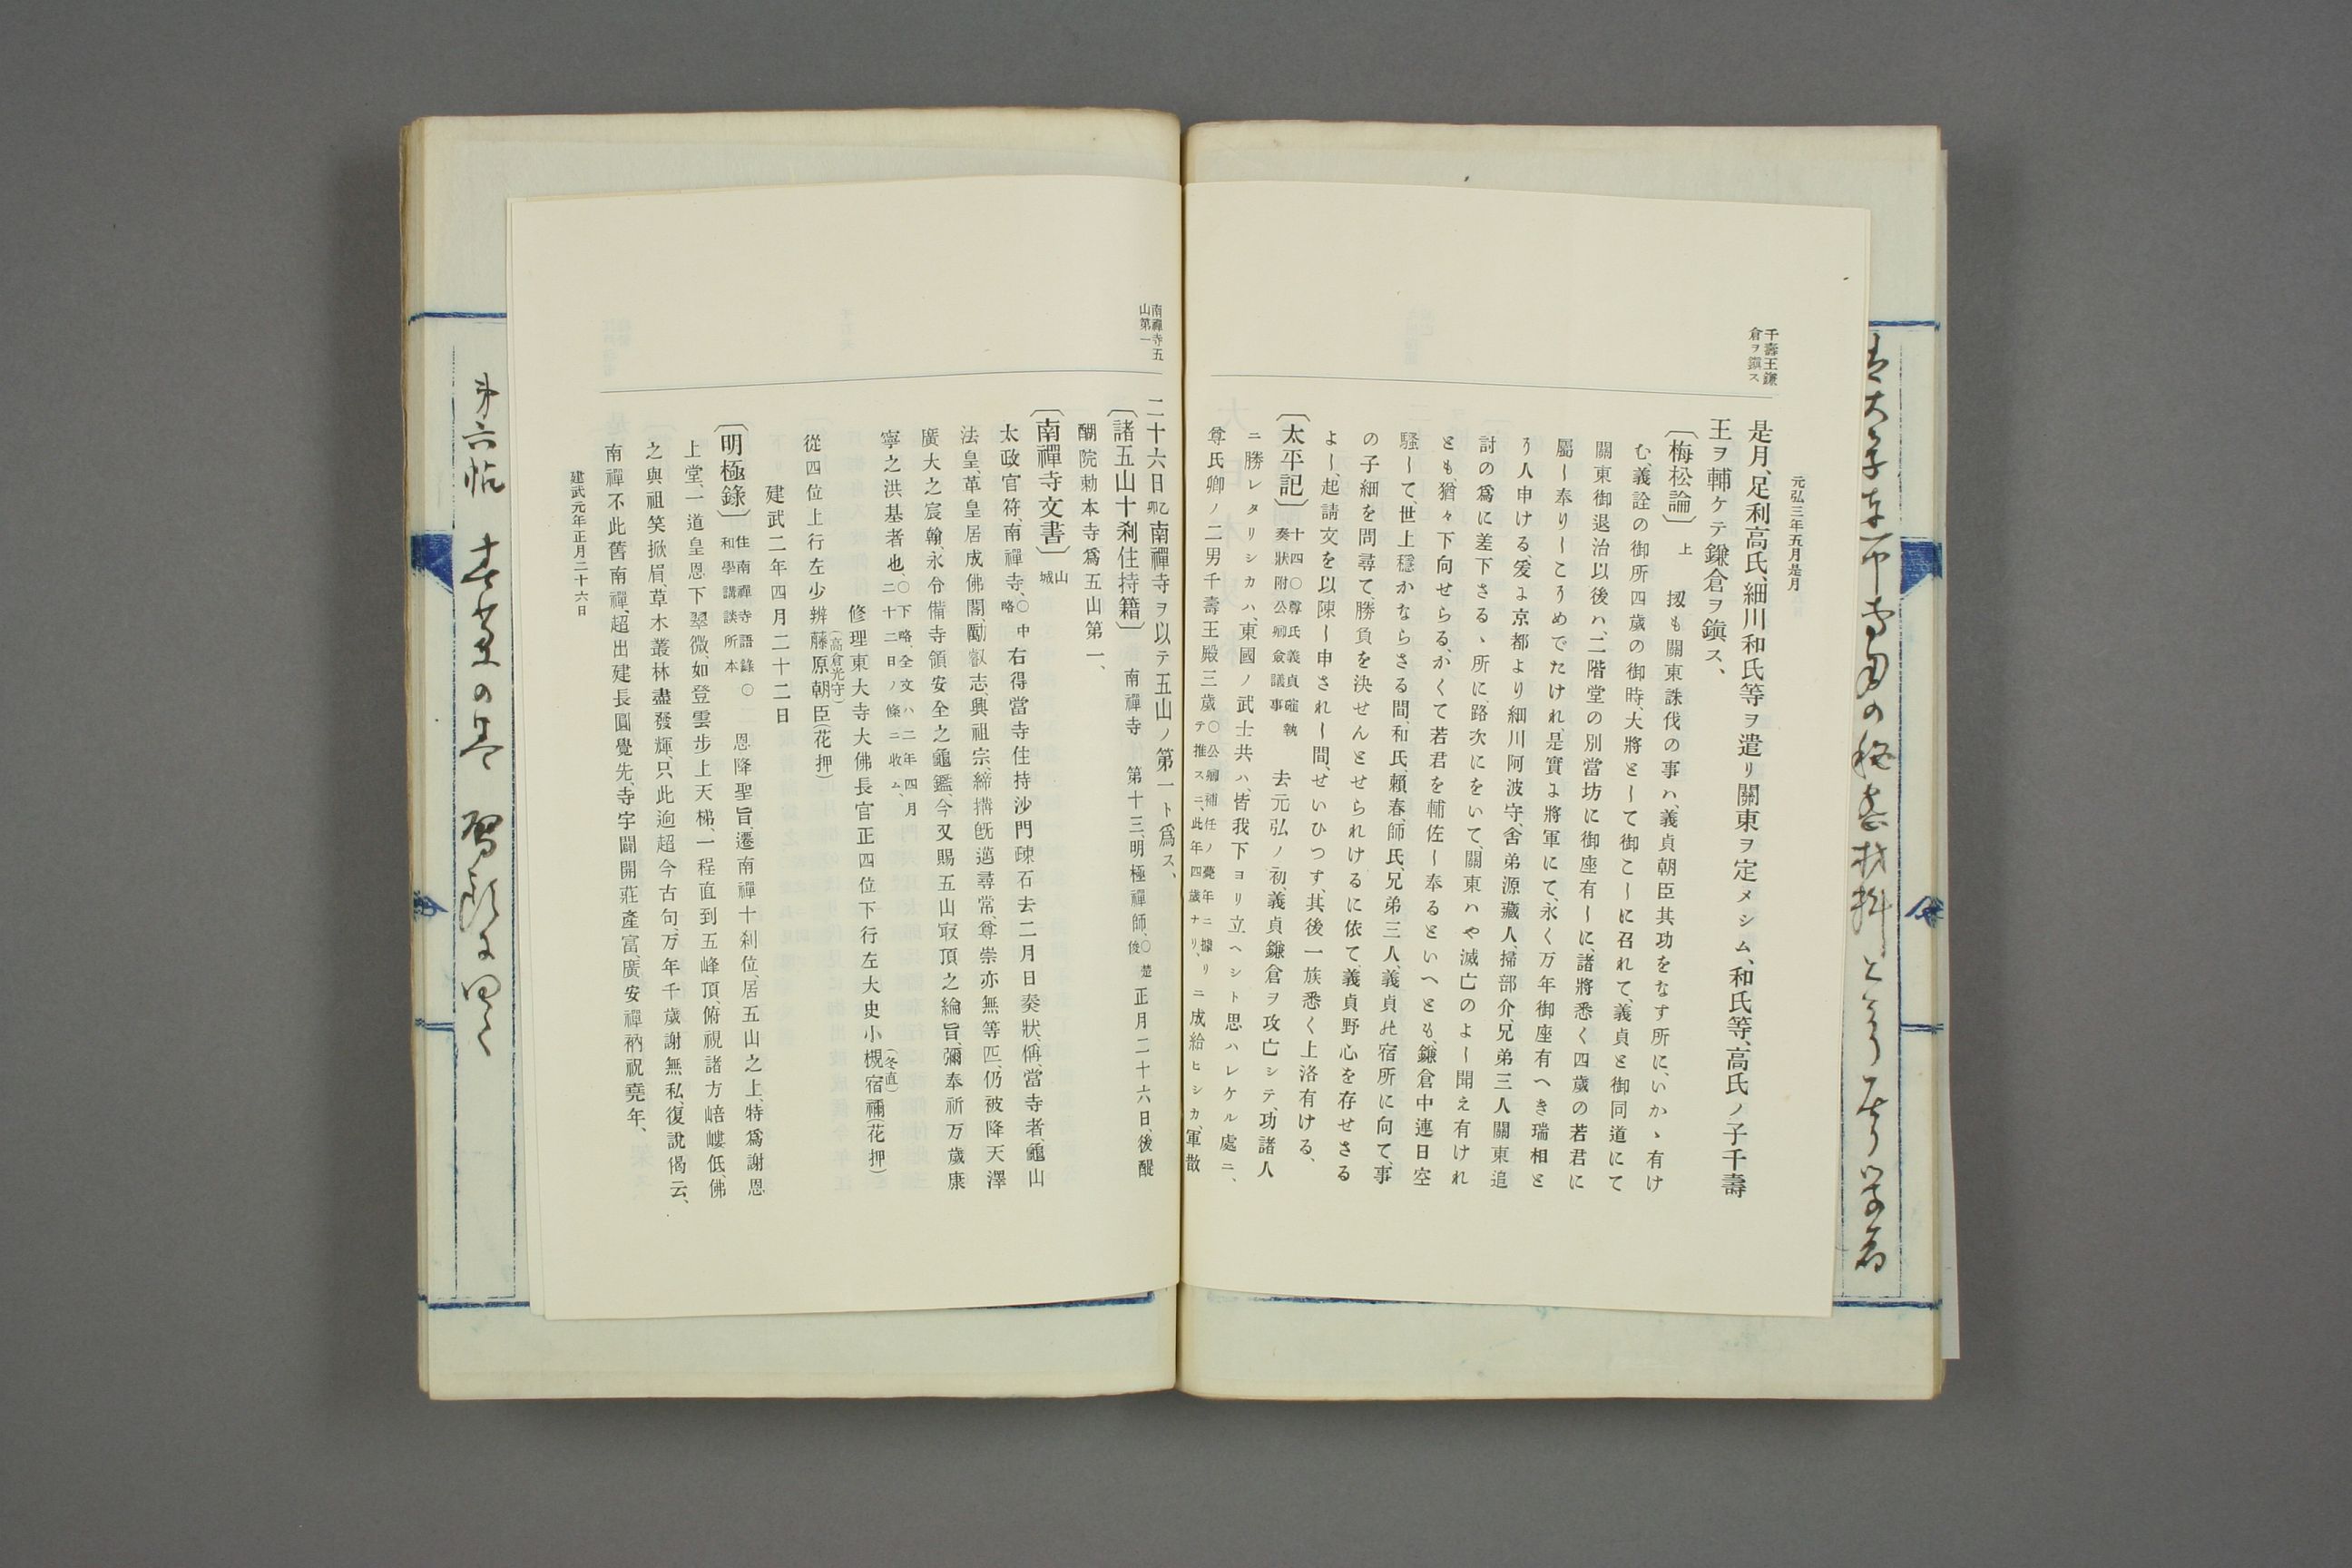 元弘三年五月是月
千壽王鎌
倉ヲ鎭ス
是月、足利高氏、細川和氏等ヲ遣リ關東ヲ定メシム、和氏等、高氏ノ子千壽
王ヲ輔ケテ鎌倉ヲ鎭ス、
〔梅松論〕上 扨も關東誅伐の事ハ、義貞朝臣其功をなす所に、いかゝ有け
む、義詮の御所四歳の御時、大將として御こしに召れて、義貞と御同道にて
關東御退治以後ハ、二階堂の別當坊に御座有しに、諸將悉く四歳の若君に
屬し奉りしこうめでたけれ、是實よ將軍にて、永く万年御座有へき瑞相と
う人申ける、爰よ京都より細川阿波守、舍弟源藏人、掃部介、兄弟三人關東追
討の爲に差下さるゝ所に、路次にをいて、關東ハや滅亡のよし聞え有けれ
とも、猶々下向せらる、かくて若君を輔佐し奉るといへとも、鎌倉中連日空
騷して、世上穩かならさる間、和氏、賴春、師氏、兄弟三人、義貞の宿所に向て、事
の子細を問尋て、勝負を決せんとせられけるに依て、義貞野心を存せさる
よし、起請文を以陳し申されし間、せいひつす、其後一族悉く上洛有ける、
〔太平記〕十四〇尊氏義貞確執
奏狀附公卿僉議事 去元弘ノ初、義貞鎌倉ヲ攻亡シテ、功諸人
ニ勝レタリシカハ、東國ノ武士共ハ、皆我下ヨリ立ヘシト思ハレケル處ニ、
尊氏卿ノ二男千壽王殿三歲〇公卿補任ノ薨年ニ據リ
テ推スニ、此年四歲ナリ、ニ成給ヒシカ、軍散
南禪寺五
山第一
二十六日乙卯南禪寺ヲ以テ五山ノ第一ト爲ス、
〔諸五山十刹住持籍〕 南禪寺 第十三、明極禪師、〇楚俊 正月二十六日、後醍
醐院勅本寺爲五山第一、
〔南禪寺文書〕山城
太政官符、南禪寺、〇中略 右得當寺住持沙門疎石去二月日奏狀、偁、當寺者、龜山
法皇、革皇居成佛閣、勵叡志、興祖宗、締搆旣邁尋常、尊崇亦無等匹、仍被降天澤
廣大之宸翰、永令備寺領安全之龜鑑、今又賜五山㝡頂之綸旨、彌奉祈万歲康
寧之洪基者也、〇下略、全文ハ二年四月
二十二日ノ條ニ收ム、
修理東大寺大佛長官正四位下行左大史小槻宿禰(冬直)(花押)
從四位上行左少辨藤原朝臣(高倉光守)(花押)
建武二年四月二十二日
〔明極錄〕住南禪寺語錄〇
和學講談所本 恩降聖旨、遷南禪十刹位、居五山之上、特爲謝恩
上堂、一道皇恩下翠微、如登雲步上天梯、一程直到五峰頂、俯視諸方嵭嶁低、佛
之與祖笑掀眉、草木叢林盡發輝、只此逈超今古句、万年千歲謝無私、復說偈云、
南禪不此舊南禪、超出建長圓覺先、寺宇闢開莊產富、廣安禪衲祝堯年、
建武元年正月二十六日
第六帖